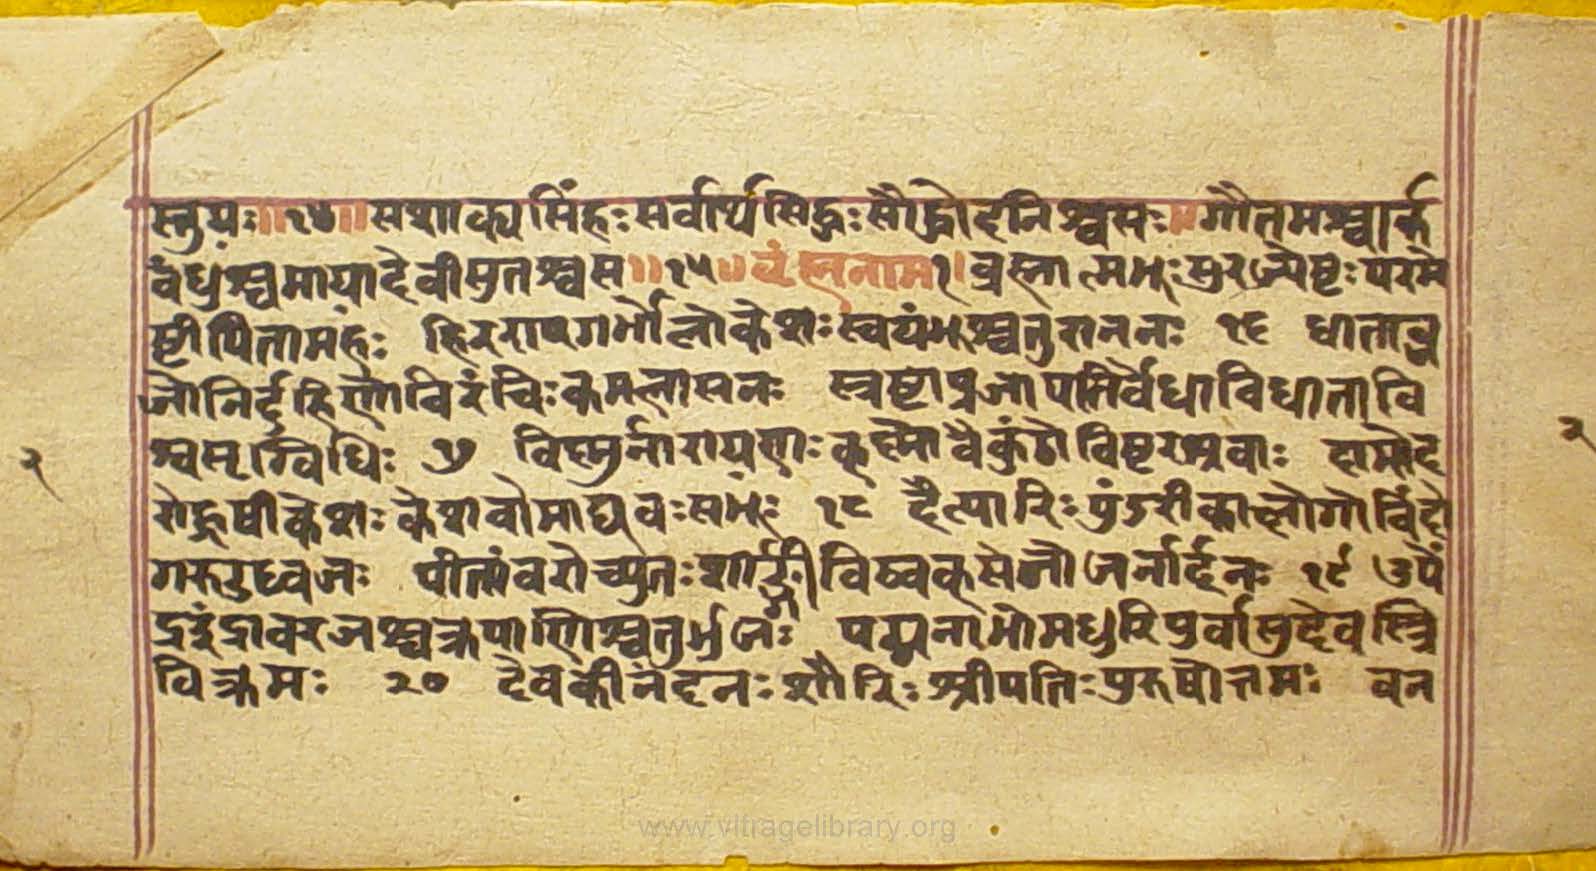 स्तुयः ॥ १४ ॥ सशाक्यसिंहः सर्वार्थसिद्धः सौद्धोदनिश्चसः ॥ गौतमश्चार्क
बंधुश्चमायादेवीसुतश्चस ॥ १५ ॥ १ ब्रह्मात्मभूः सुरज्येष्टः परमे
ष्टीपितामहः हिरण्यगर्भोलोकेशः स्वयंभूश्चतुराननः १६ धाताब्ज
जोनिर्द्रुहिणोविरंचिः कमलासनः स्त्रष्टाप्रजापतिर्वेधाविधातावि
श्वसृग्विधिः १७ विष्णुर्नारायणः कृष्णोवैकुंठोविष्टरश्रवाः दामोद
रोहृषीकेशः केशवोमाधवः सभूः १८ दैत्यारिः पुंडरीकाक्षोगोविंदो
गरुडध्वजः पीतांबरोच्युतः शार्ङ्गीविष्वक्सेनोजनार्दनः १९ उपें
द्रइंद्रावरजश्चक्रपाणिश्चतुर्भुजः पद्मनाभोमधुरिपुर्वासुदेवस्त्रि
विक्रमः २० देवकीनंदनः शौरिः श्रीपतिः पुरुषोत्तमः वन
२
२
www.vitragelibrary.org